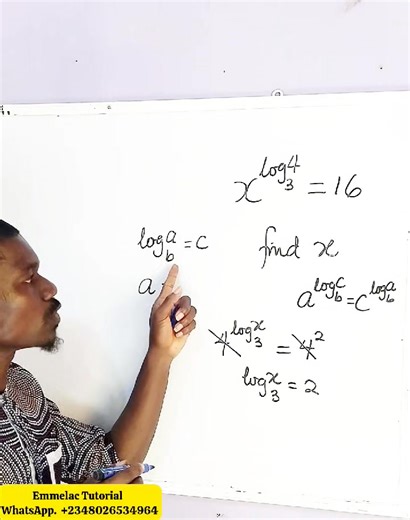 x^log₃4 = 16
log_b a = c
find x
a =
a^log_b c = c^log_b a
4^log₃x = 4²
log₃x = 2
Emmelac Tutorial
WhatsApp. +2348026534964